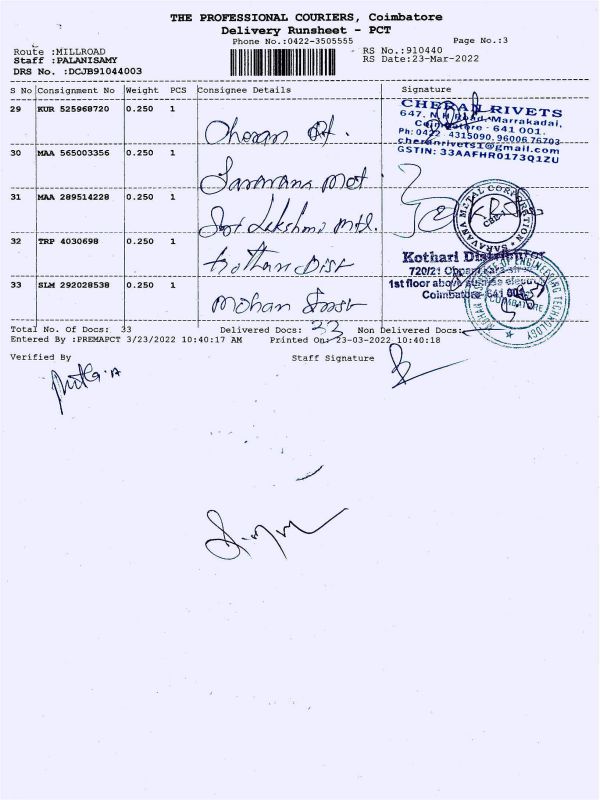 THE PROFESSIONAL COURIERS, Coimbatore
Delivery Runsheet - PCT
Phone No.:0422-3505555 Page No.:3
Route :MILLROAD RS No.:910440
Staff :PALANISAMY RS Date:23-Mar-2022
DRS No. :DCJB91044003
S No Consignment No Weight PCS Consignee Details Signature
29 KUR 525968720 0.250 1 Cheran
CHERAN RIVETS
647, N.H.Road, Marrakadai,
Coimbatore - 641 001.
Ph: 0422 - 4315090, 9600676703
cheranrivets1@gmail.com
GSTIN: 33AAFHR0173Q1ZU
30 MAA 565003356 0.250 1 Saravana Met
SARAVANA METAL CORPORATION
CBE-1
31 MAA 289514228 0.250 1 Lakshmi Mtl.
32 TRP 4030698 0.250 1 Kothari Dist
Kothari Distributor
720/21
1st floor above
Coimbatore-641 001.
33 SLM 292028538 0.250 1 Mohan Inst
OF ENGINEERING TECHNOLOGY
COIMBATORE
Total No. Of Docs: 33 Delivered Docs: 33 Non Delivered Docs:
Entered By :PREMAPCT 3/23/2022 10:40:17 AM Printed On: 23-03-2022 10:40:18
Verified By Staff Signature